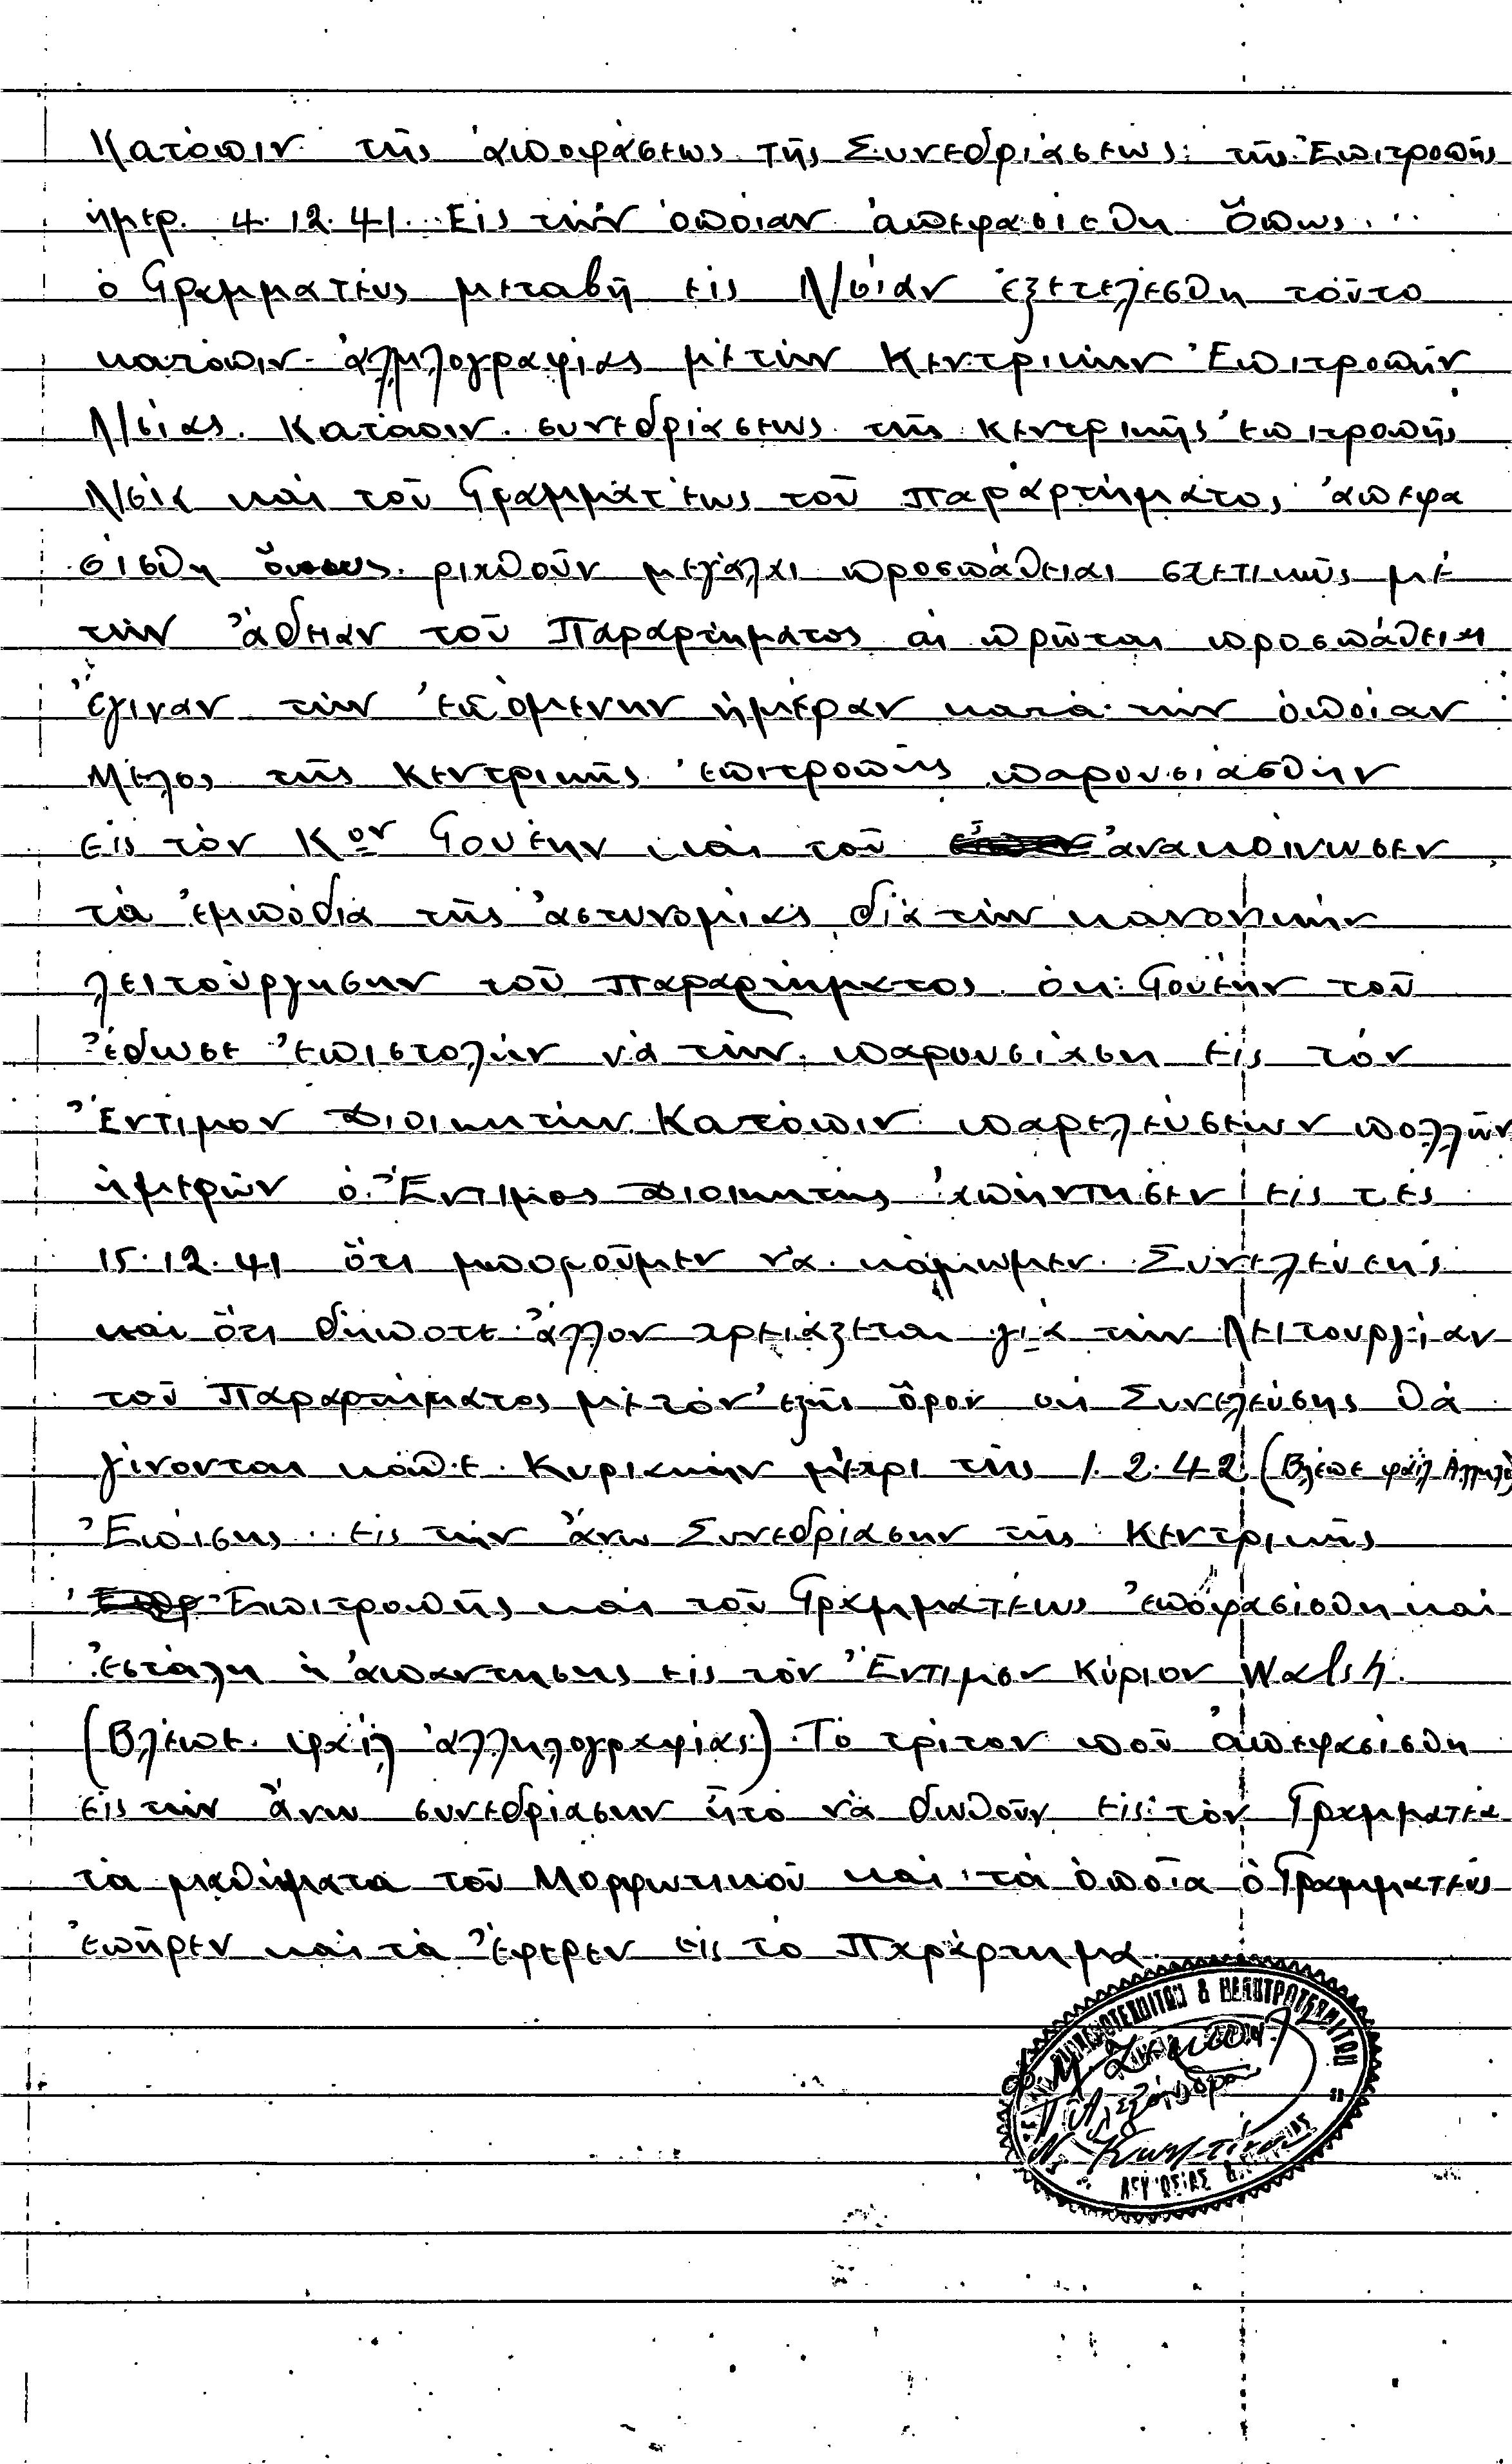 Κατόπιν τῆς ἀποφάσεως τῆς Συνεδριάσεως τῆς Ἐπιτροπῆς
ἡμερ. 4.12.41. Εἰς τὴν ὁποίαν ἀπεφασίσθη ὅπως
ὁ Γραμματεὺς μεταβῇ εἰς Λ/σίαν ἐξετελέσθη τοῦτο
κατόπιν ἀλληλογραφίας μὲ τὴν Κεντρικὴν Ἐπιτροπὴν
Λ/σίας. Κατόπιν συνεδριάσεως τῆς κεντρικῆς ἐπιτροπῆς
Λ/σίας καὶ τοῦ Γραμματέως τοῦ Παραρτήματος ἀπεφα
σίσθη ὅπως ριχθοῦν μεγάλαι προσπάθειαι σχετικῶς μὲ
τὴν ἄδειαν τοῦ Παραρτήματος αἱ πρῶται προσπάθειαι
Ἔγιναν τὴν ἑπόμενην ἡμέραν κατὰ τὴν ὁποίαν
Μέλος τῆς Κεντρικῆς ἐπιτροπῆς παρουσιάσθην
εἰς τὸν Κον Γουέην καὶ τοῦ ἀνακοίνωσεν
τὰ ἐμπόδια τῆς ἀστυνομίας διὰ τὴν κανονικὴν
λειτούργησην τοῦ Παραρτήματος. ὁ κ: Γουέην τοῦ
ἔδωσε ἐπιστολὴν νὰ τὴν παρουσιάση εἰς τὸν
Ἔντιμον Διοικητὴν Κατόπιν παρελεύσεων πολλῶν
ἡμερῶν ὁ Ἔντιμος Διοικητὴς ἀπήντησεν εἰς τὲς
15.12.41 ὅτι μποροῦμεν νὰ κάμωμεν Συνελεύσης
καὶ ὅτι δήποτε ἄλλον χρειάζεται γιὰ τὴν Λειτουργίαν
τοῦ Παραρτήματος μὲ τὸν ἑξῆς ὅρον οἱ Συνελεύσης θὰ
γίνονται κάθε Κυριακὴν μέχρι τῆς 1.2.42 (Βλέπε φάϊλ Ἀλληλο)
Ἐπίσης εἰς τὴν ἄνω Συνεδρίασην τῆς Κεντρικῆς
Ἐπιτροπῆς καὶ τοῦ Γραμματέως ἐποφασίσθη καὶ
ἐστάλη ἡ ἀπαντησης εἰς τὸν Ἔντιμον Κύριον Walsh.
(Βλέπε φάϊλ ἀλληλογραφίας) Τὸ τρίτον ποῦ ἀπεφασίσθη
εἰς τὴν ἄνω συνεδρίασην ἦτο νὰ δωθοῦν εἰς τὸν Γραμματέα
τὰ μαθήματα τοῦ Μορφωτικοῦ καὶ τὰ ὁποῖα ὁ Γραμματεὺς
ἐπῆρεν καὶ τὰ ἔφερεν εἰς τὸ Παράρτημα
& ΗΛΕΚΤΡΟΤΕΧΝΙΤΩΝ
Ἀλεξάνδρου
ΛΕΥΚΩΣΙΑΣ &